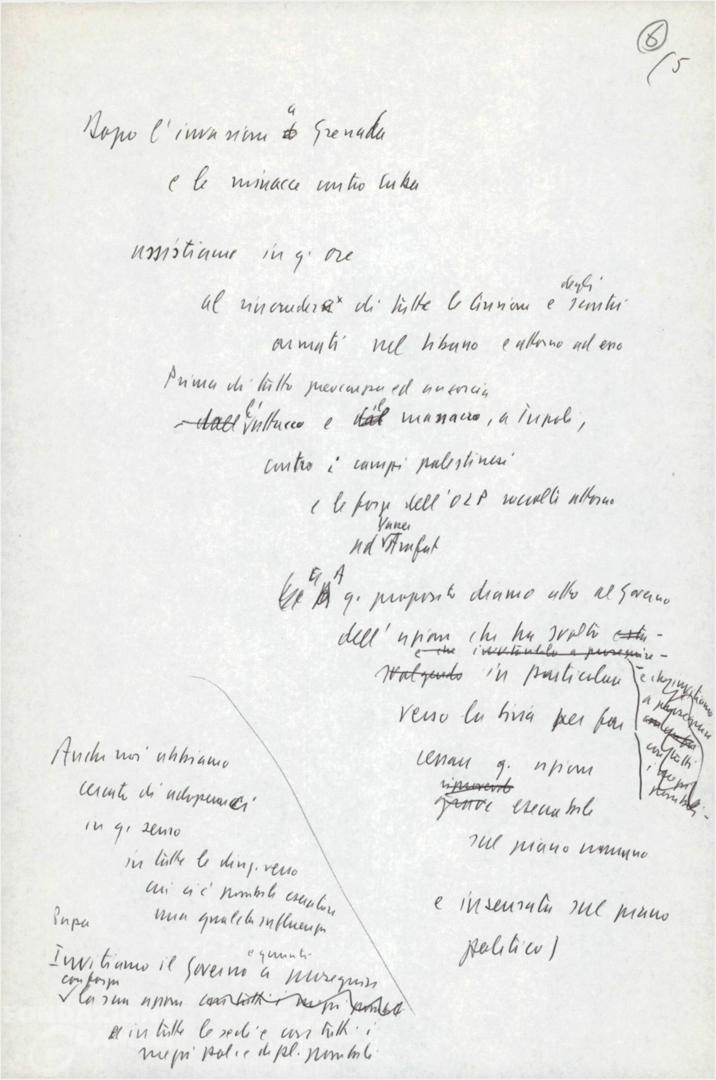 6
/5
Dopo l'invasione a Grenada
e le minacce contro Cuba
assistiamo in q. ore
al riaccendersi di tutte le tensioni e degli scontri
armati nel Libano e attorno ad esso
Prima di tutto preoccupa ed angoscia
dall l'attacco e dal il massacro, a Tripoli,
contro i campi palestinesi
e le forze dell'OLP raccolte attorno
ad Yasser Arafat
A q. proposito diamo atto al Governo
dell'azione che ha svolto
e che invitandolo a proseguire
svolgendo in particolare
verso la Siria per far
cessare q. azione
grave esecrabile
sul piano umano
e insensata sul piano
politico)
e che invitiamo
a proseguire
con tutti
i mezzi
possibili
Anche noi abbiamo
cercato di adoperarci
in q. senso
in tutte le direz. verso
cui ci è possibile esercitare
una qualche influenza
Papa
Invitiamo il Governo a proseguire
la sua azione con tutti i mezzi possibili
e in tutte le sedi e con tutti i
mezzi pol. e dipl. possibili